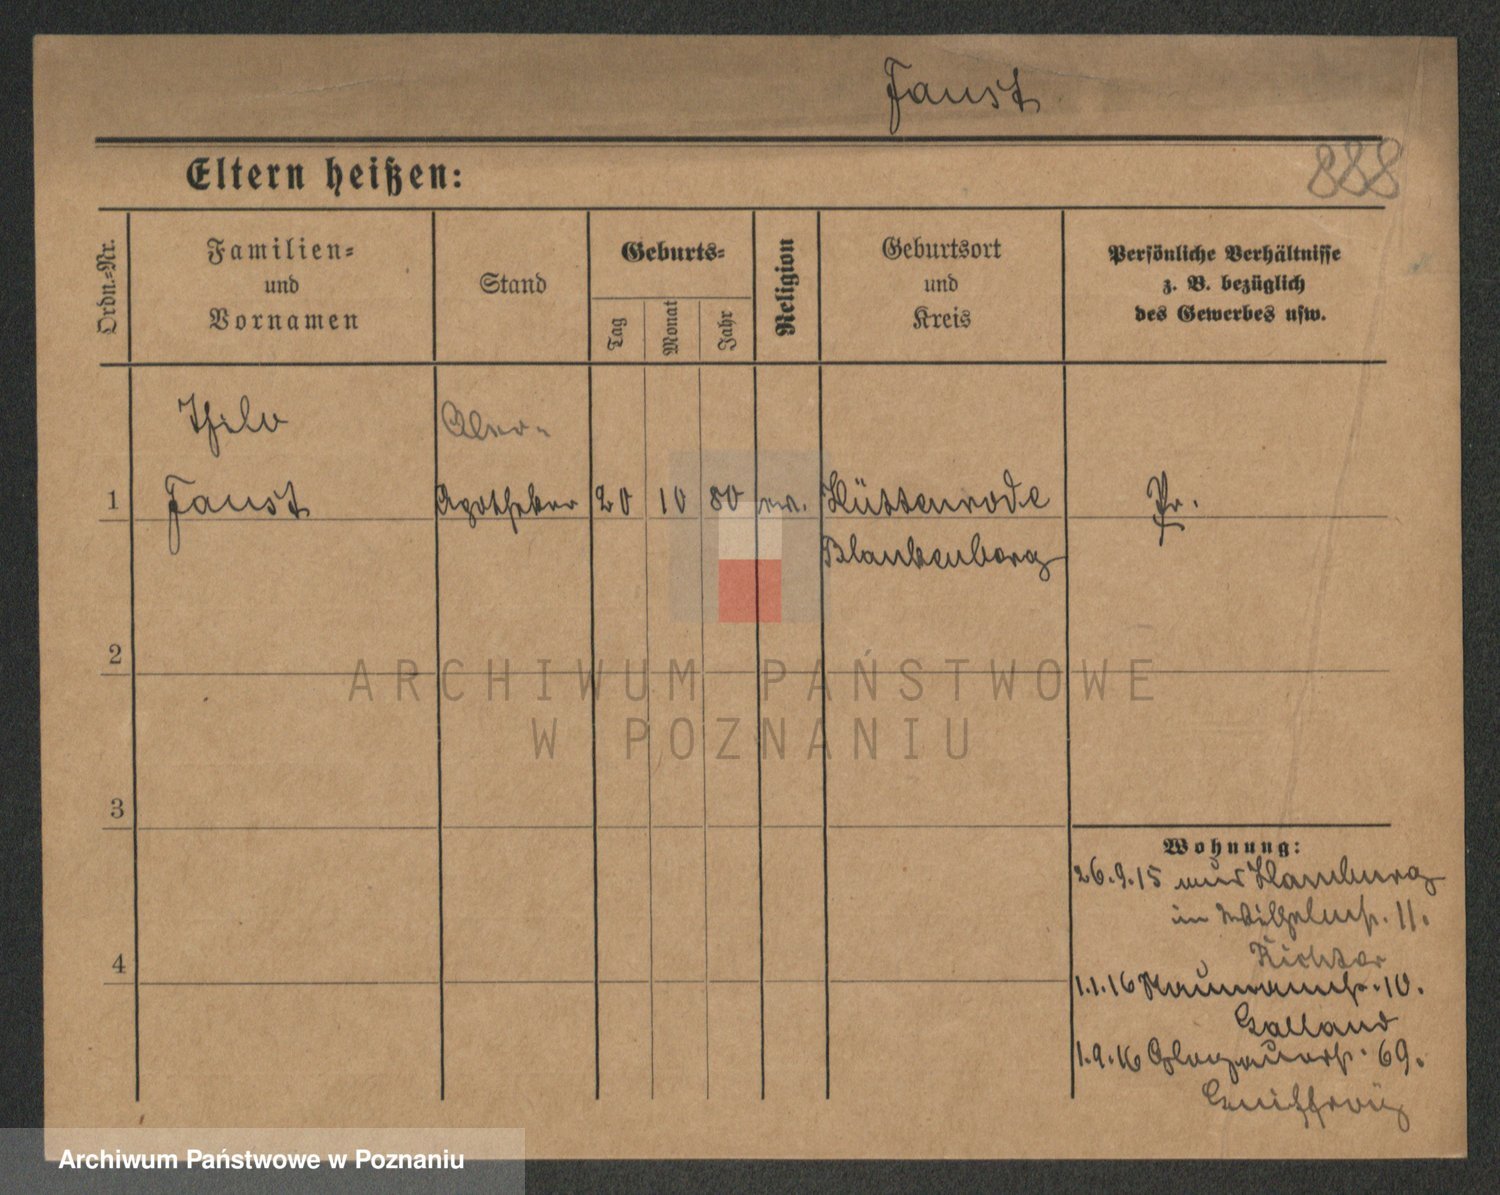 Faust
888
Eltern heißen:
Ordn.-Nr.
Familien-
und
Vornamen
Stand
Geburts-
Tag
Monat
Jahr
Religion
Geburtsort
und
Kreis
Persönliche Verhältnisse
z. B. bezüglich
des Gewerbes usw.
Thilo
1 Faust Apotheker 20 10 80 Hüttenrode Pr.
Blankenburg
2
ARCHIWUM PAŃSTWOWE
W POZNANIU
3
Wohnung:
26.9.15 aus Hamburg
in Wilhelmstr. 11.
Richter
1.1.16 Naumannstr. 10.
Galland
1.9.16 Glogauerstr. 69.
4
Archiwum Państwowe w Poznaniu